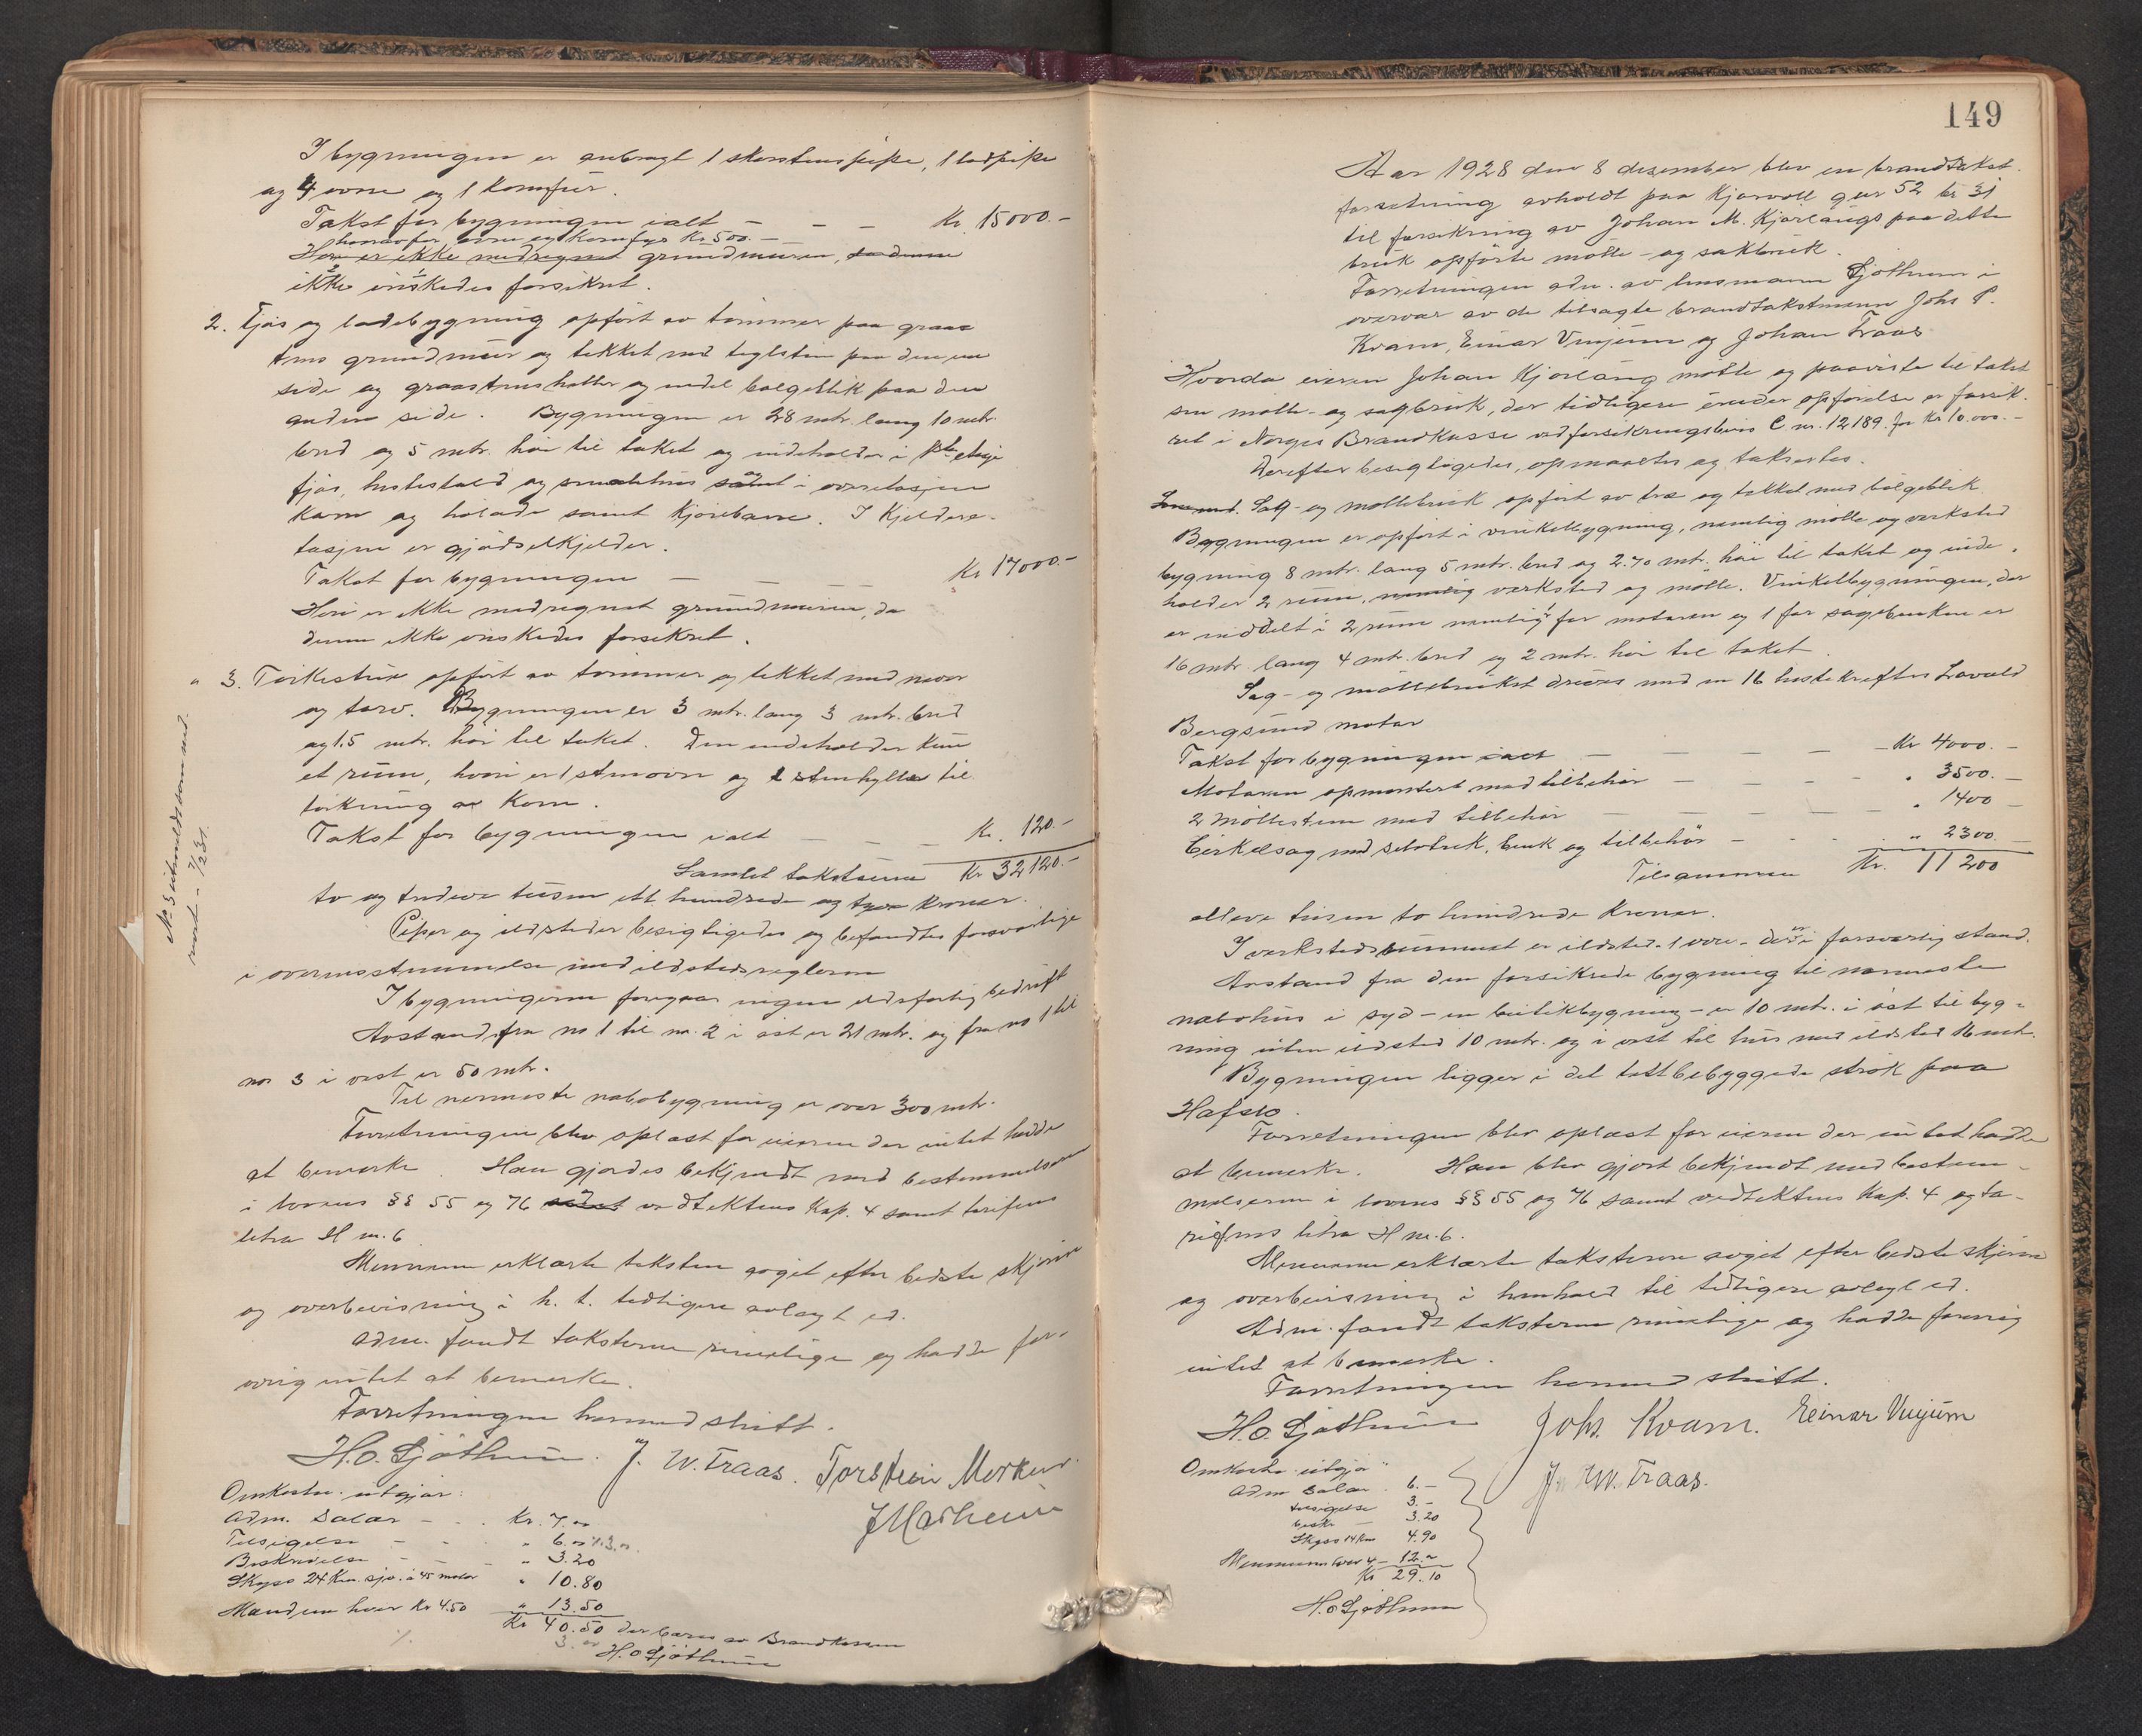 I bygningen er anbragt 1 skorstenspipe, 1 ladpipe
og 4 ovne og 1 komfur.
Takst for bygningen ialt — — — Kr. 15000.-
herav for ovne og komfyr Kr 500.—
Heri er ikke medregnet grundmuren, da denne
ikke önskedes forsikret.
2. Fjös og ladebygning opfört av tömmer paa graa-
stens grundmur og tekket med teglsten paa den ene
side og graastensheller og endel bølgeblik paa den
anden side. Bygningen er 28 mtr. lang 10 mtr.
bred og 5 mtr. höi til taket og indeholder i 1ste etasje
fjös, hestestald og smalehus samt i overetasjen
korn og hölade samt kjörebane. I Kjelderе-
tasjen er gjödselkjelder.
Takst for bygningen — — — — Kr 17000.-
Heri er ikke medregnet grundmuren, da
denne ikke önskedes forsikret.
" 3. Törkestue opfört av tömmer og tekket med never
og torv. Bygningen er 3 mtr. lang 3 mtr. bred
og 1.5 mtr. höi til taket. Den indeholder kun
et rum, hvori er 1 stenovn og 2 stenhyller til
törkning av korn.
Takst for bygningen ialt — — — Kr. 120.-
Samlet takstsum Kr 32120.-
to og tredive tusen ett hundrede og tyve kroner.
Piper og ildsteder besigtigedes og befandtes forsvarlige
i overensstemmelse med ildstedsreglerne
I bygningerne foregaar ingen ildsfarlig bedrift
Avstand fra no 1 til no. 2 i öst er 21 mtr. og fra no 1 til
no 3 i vest er 50 mtr.
Til nermeste nabobygning er over 300 mtr.
Forretningen blev oplæst for eieren der intet hadde
at bemerke. Han gjordes bekjendt med bestemmelserne
i lovens §§ 55 og 76 samt vedtektens Kap. 4 samt tarifens
litra H nr. 6
Mennene erklærte taksten avgit efter bedste skjönn
og overbevisning i h. t. tidligere avlagt ed.
Adm. fandt taksterne rimelige og hadde for-
övrig intet at bemerke.
Forretningen hermed slutt.
H.O. Ljöthun. J. W. Traas. Torstein Morken
Omkostn. utgjör:
Adm. Salær — - - Kr. 7.00
Tilsigelse — - - " 6.00 % 3.00
Beskrivelse — - - " 3.20
Skyss 24 Km. sjö. á 45 motor " 10.80
Mændene hver Kr 4.50 " 13.50
Kr 40.50 der bæres av Brandkassen
H.O Ljöthun
No 3 utmeldt som ned-
revet - 7/1 231.
149
Aar 1928 den 8 desember blev en brandtakst-
forretning avholdt paa Kjörvoll gnr 52 br 31
til forsikring av Johan M. Kjörlaugs paa dette
bruk opförte mölle- og sakbruk.
Forretningen adm. av lensmann Ljöthun i
overvær av de tilsagte brandtakstmenn Johs P.
Kvam, Einar Vinjum og Johan Traas
Hvorda eieren Johan Kjörlaug mötte og paaviste til takst
sin mölle- og sagbruk, der tidligere under opförelse er forsik-
ret i Norges Brandkasse ved forsikringsbevis C nr. 12189. for Kr 10.000.-
Derefter besigtigedes, opmaaltes og taksertes.
Sag- og möllebruk opfört av træ og tekket med bölgeblik
Bygningen er opfört i vinkelbygning, nemlig mölle og verksted
bygning 8 mtr. lang 5 mtr. bred og 2.70 mtr. höi til taket og inde-
holder 2 rum, nemlig verksted og mölle. Vinkelbygningen, der
er inddelt i 2 rum nemlig 1 for motoren og 1 for sagbenken er
16 mtr. lang 4 mtr. bred og 2 mtr. höi til taket.
Sag- og möllebruket drives med en 16 hestekrefters Lovald
Bergsund motor
Takst for bygningen ialt — — — — — Kr 4000.—
Motoren opmontert med tilbehör — — — — " 3500.—
2 möllestene med tilbehör — — — — " 1400 —
Cirkelsag med selvtrek, benk og tilbehör — - - " 2300.—
Tilsammen Kr. 11200
elleve tusen to hundrede kroner.
I verkstedsrummet er ildsted - 1 ovn - der er i forsvarlig stand.
Avstand fra den forsikrede bygning til nærmeste
nabohus i syd - en butikbygning - er 10 mtr. i öst til byg-
ning uten ildsted 10 mtr. og i vest til hus med ildsted 16 mtr.
Bygningen ligger i det tettbebyggede strök paa
Hafslo.
Forretningen blev oplæst for eieren der intet hadde
at bemerke. Han blev gjort bekjendt med bestem-
melserne i lovens §§ 55 og 76 samt vedtektens Kap. 4 og ta-
rifens litra H nr. 6.
Mennene erklærte taksterne avgit efter bedste skjönn
og overbevisning i henhold til tidligere avlagt ed.
Adm. fandt taksterne rimelige og hadde forövrig
intet at bemerke.
Forretningen hermed slutt.
H.O. Ljöthun Johs. Kvam. Einar Vinjum
J. W. Traas.
Omkostn. utgjör
Adm Salær . 6.—
tilsigelse 3.—
beskr — 3.20
Skyss 14 Km 4.90
Mennene hver 4— 12.00
Kr 29.10
H.O Ljöthun